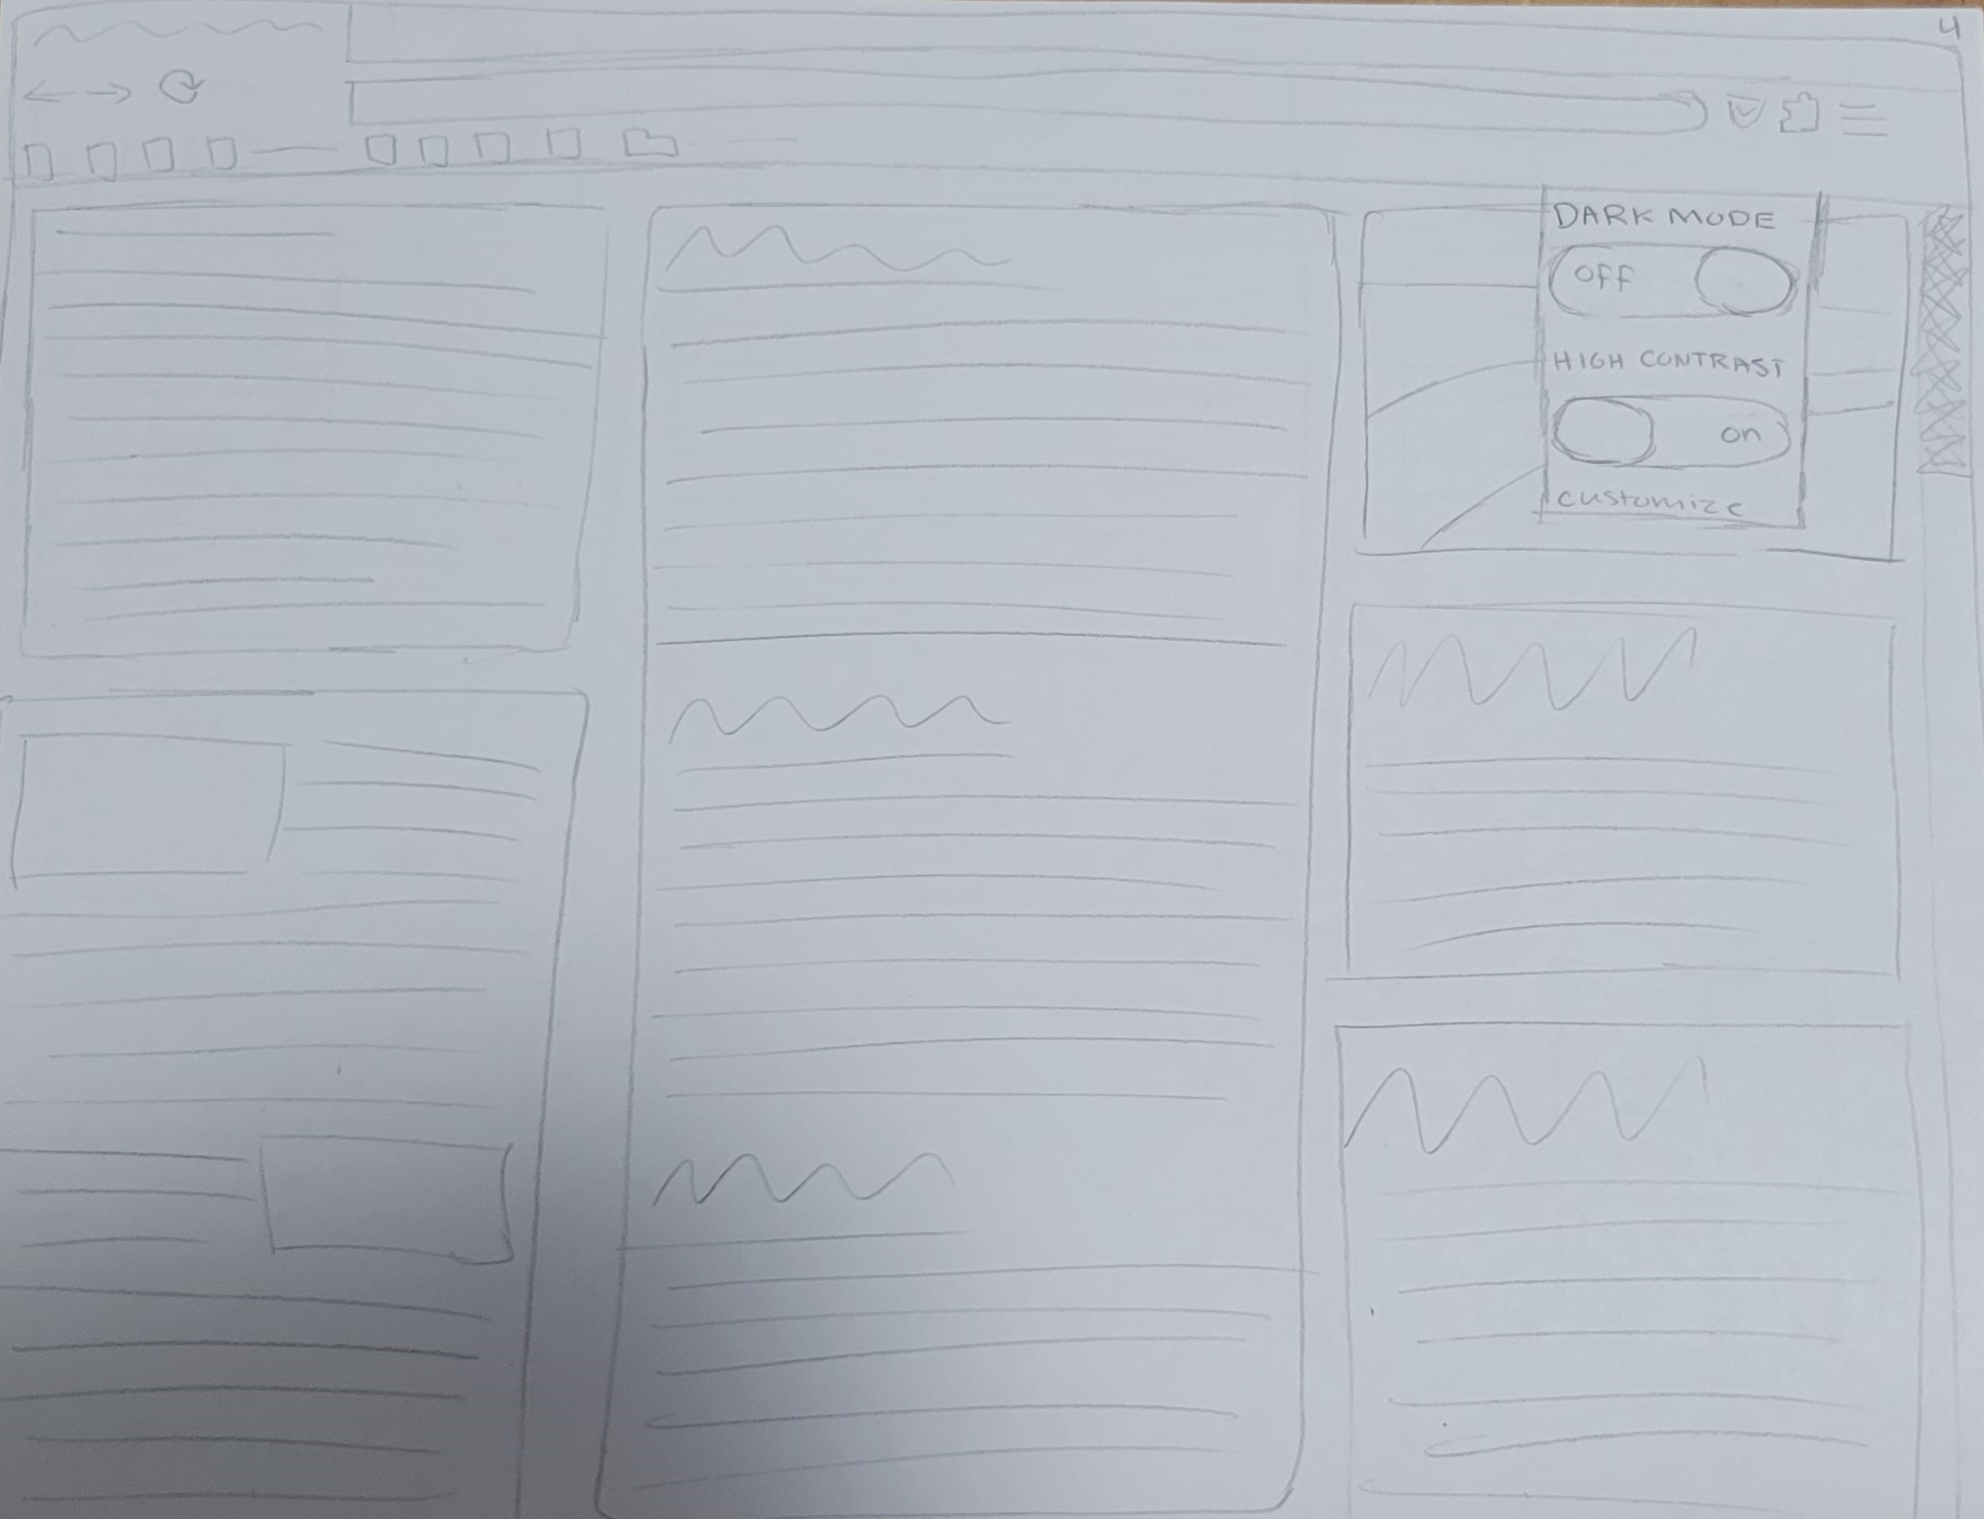 4
DARK MODE
OFF
HIGH CONTRAST
on
customize